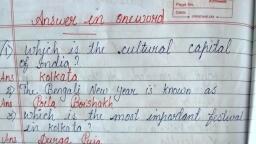 Page No.
Date
Answer in oneword
1) Which is the cultural capital
of India?
Ans Kolkata
2) The Bengali New year is known as
Ans Poila Boishakh
3) Which is the most important festival
in kolkata?
Ans Durga Puja